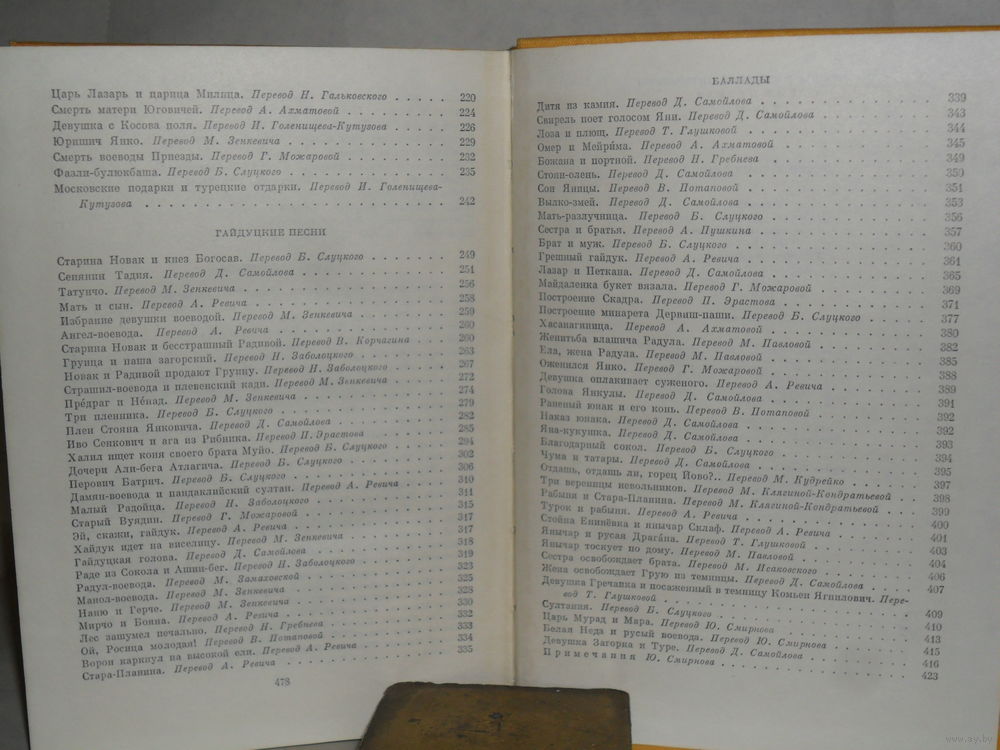 Царь Лазарь и царица Милица. Перевод Н. Гальковского . . . . . 220
Смерть матери Юговичей. Перевод А. Ахматовой . . . . . 224
Девушка с Косова поля. Перевод И. Голенищева-Кутузова . . . . . 226
Юришич Янко. Перевод М. Зенкевича . . . . . 229
Смерть воеводы Приезды. Перевод Г. Можаровой . . . . . 232
Фазли-булюкбаша. Перевод Б. Слуцкого . . . . . 235
Московские подарки и турецкие отдарки. Перевод И. Голенищева-
Кутузова . . . . . 242
ГАЙДУЦКИЕ ПЕСНИ
Старина Новак и кнез Богосав. Перевод Б. Слуцкого . . . . . 249
Сенянин Тадия. Перевод Д. Самойлова . . . . . 251
Татунчо. Перевод М. Зенкевича . . . . . 256
Мать и сын. Перевод А. Ревича . . . . . 258
Избрание девушки воеводой. Перевод М. Зенкевича . . . . . 259
Ангел-воевода. Перевод А. Ревича . . . . . 260
Старина Новак и бесстрашный Радивой. Перевод В. Корчагина . . . . . 260
Груица и паша загорский. Перевод Н. Заболоцкого . . . . . 263
Новак и Радивой продают Груицу. Перевод Н. Заболоцкого . . . . . 267
Страшил-воевода и плевенский кади. Перевод М. Зенкевича . . . . . 272
Пре́драг и Не́над. Перевод М. Зенкевича . . . . . 274
Три пленника. Перевод Б. Слуцкого . . . . . 279
Плен Стояна Янковича. Перевод Д. Самойлова . . . . . 282
Иво Сенкович и ага из Рибника. Перевод П. Эрастова . . . . . 285
Халил ищет коня своего брата Муйо. Перевод Б. Слуцкого . . . . . 294
Дочери Али-бега Атлагича. Перевод Б. Слуцкого . . . . . 302
Перович Батрич. Перевод Б. Слуцкого . . . . . 306
Дамян-воевода и пандаклийский султан. Перевод А. Ревича . . . . . 310
Малый Радойца. Перевод Н. Заболоцкого . . . . . 311
Старый Вуядин. Перевод Г. Можаровой . . . . . 315
Эй, скажи, гайдук. Перевод А. Ревича . . . . . 317
Хайдук идет на виселицу. Перевод М. Зенкевича . . . . . 317
Гайдуцкая голова. Перевод Д. Самойлова . . . . . 318
Раде из Сокола и Ашин-бег. Перевод Н. Заболоцкого . . . . . 319
Радул-воевода. Перевод М. Замаховской . . . . . 323
Манол-воевода. Перевод М. Зенкевича . . . . . 325
Наню и Герче. Перевод М. Зенкевича . . . . . 328
Мирчо и Бояна. Перевод А. Ревича . . . . . 330
Лес зашумел печально. Перевод Н. Гребнева . . . . . 332
Ой, Росица молодая! Перевод В. Потаповой . . . . . 333
Ворон каркнул на высокой ели. Перевод А. Ревича . . . . . 334
Стара-Планина. Перевод А. Ревича . . . . . 335
478
БАЛЛАДЫ
Дитя из камня. Перевод Д. Самойлова . . . . . 339
Свирель поет голосом Яни. Перевод Д. Самойлова . . . . . 343
Лоза и плющ. Перевод Т. Глушковой . . . . . 344
Омер и Мейри́ма. Перевод А. Ахматовой . . . . . 345
Божана и портной. Перевод Н. Гребнева . . . . . 349
Стоян-олень. Перевод Д. Самойлова . . . . . 350
Сон Яницы. Перевод В. Потаповой . . . . . 351
Вылко-змей. Перевод Д. Самойлова . . . . . 353
Мать-разлучница. Перевод Б. Слуцкого . . . . . 356
Сестра и братья. Перевод А. Пушкина . . . . . 357
Брат и муж. Перевод Б. Слуцкого . . . . . 360
Грешный гайдук. Перевод А. Ревича . . . . . 361
Лазар и Петкана. Перевод Д. Самойлова . . . . . 365
Майдаленка букет вязала. Перевод Г. Можаровой . . . . . 369
Построение Скадра. Перевод П. Эрастова . . . . . 371
Построение минарета Дервиш-паши. Перевод Б. Слуцкого . . . . . 377
Хасанагиница. Перевод А. Ахматовой . . . . . 380
Женитьба влашича Радула. Перевод М. Павловой . . . . . 382
Ела, жена Радула. Перевод М. Павловой . . . . . 385
Оженился Янко. Перевод Г. Можаровой . . . . . 388
Девушка оплакивает суженого. Перевод А. Ревича . . . . . 389
Голова Янкулы. Перевод Д. Самойлова . . . . . 391
Раненый юнак и его конь. Перевод В. Потаповой . . . . . 392
Наказ юнака. Перевод Д. Самойлова . . . . . 392
Яна-кукушка. Перевод Д. Самойлова . . . . . 393
Благодарный сокол. Перевод Б. Слуцкого . . . . . 394
Чума и татары. Перевод Д. Самойлова . . . . . 395
Отдашь, отдашь ли, горец Йово?.. Перевод М. Кудрейко . . . . . 397
Три вереницы невольников. Перевод М. Клягиной-Кондратьевой . . . . . 398
Рабыня и Стара-Планина. Перевод М. Клягиной-Кондратьевой . . . . . 399
Турок и рабыня. Перевод А. Ревича . . . . . 400
Стойна Енинёвка и янычар Силаф. Перевод А. Ревича . . . . . 401
Янычар и русая Драга́на. Перевод Т. Глушковой . . . . . 403
Янычар тоскует по дому. Перевод М. Павловой . . . . . 404
Сестра освобождает брата. Перевод М. Исаковского . . . . . 406
Жена освобождает Грую из темницы. Перевод Д. Самойлова . . . . . 407
Девушка Гречанка и посаженный в темницу Комнен Ягнилович. Пере-
вод Т. Глушковой . . . . . 409
Султания. Перевод Б. Слуцкого . . . . . 410
Царь Мурад и Мара. Перевод Ю. Смирнова . . . . . 413
Белая Неда и русый воевода. Перевод Ю. Смирнова . . . . . 415
Девушка Загорка и Туре. Перевод Д. Самойлова . . . . . 416
Примечания Ю. Смирнова . . . . . 423
www.ay.by